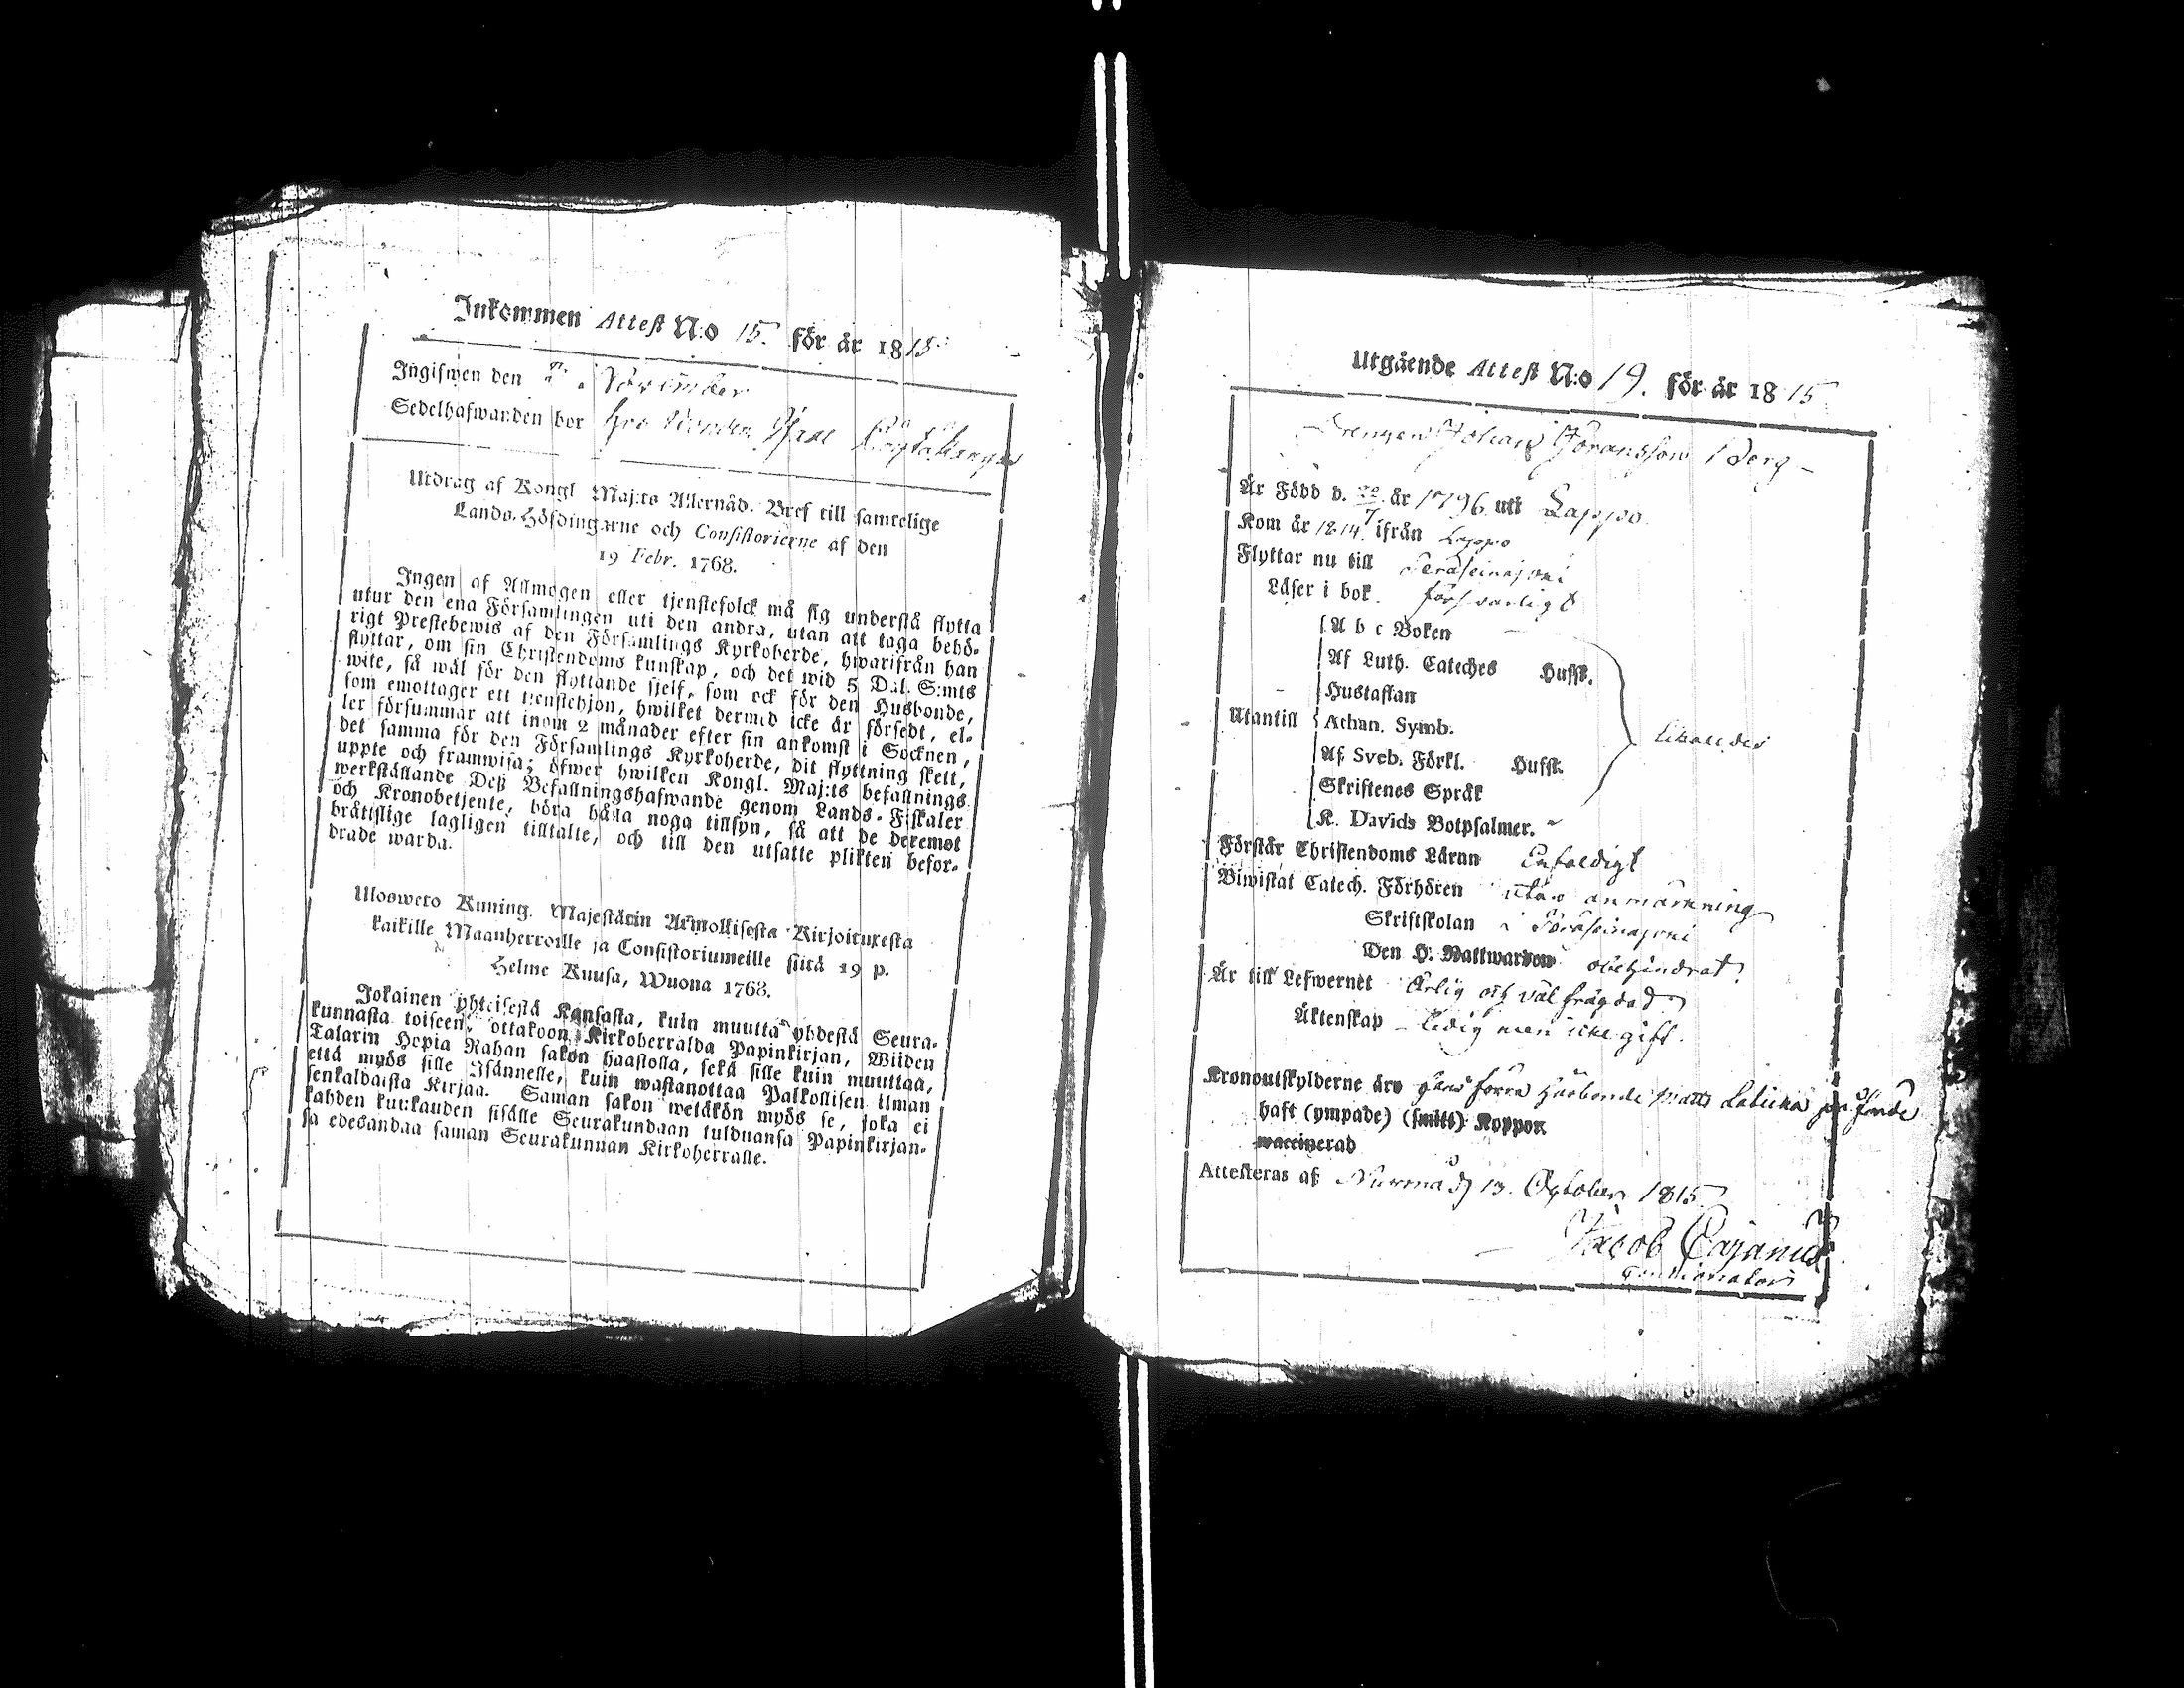 Inkommen Attest N:o 15. för år 1815.
Ingifwen den November
Sedelhafwanden bor hos Bonden
Utdrag af Kongl Maj:ts Allernåd. Bref till samtelige
Lands-Höfdingarne och Consistorierne af den
19 Febr. 1768.
Ingen af Allmogen eller tjenstefolck må sig understå flytta
utur den ena Församlingen uti den andra, utan att taga behö-
rigt Prestebewis af den Församlings Kyrkoherde, hwarifrån han
flyttar, om sin Christendoms kunskap, och det wid 5 Dal. S:mts
wite, så wäl för den flyttande sjelf, som ock för den Husbonde,
som emottager ett tjenstehjon, hwilket dermed icke är försedt, el-
ler försummar att inom 2 månader efter sin ankomst i Socknen,
det samma för den Församlings Kyrkoherde, dit flyttning skett,
uppte och framwisa; öfwer hwilken Kongl. Maj:ts befallnings
werkställande Deß Befallningshafwande genom Lands-Fiskaler
och Kronobetjente, böra hålla noga tillsyn, så att de deremot
bråttslige lagligen tilltalte, och till den utsatte plikten befor-
drade warda.
Ulosweto Kuning. Majestätin Armollisesta Kirjoituxesta
kaikille Maanherroille ja Consistoriumeille siitä 19 p.
Helme Kuusa, Wuona 1768.
Jokainen yhteisestä Kansasta, kuin muutta yhdestä Seura-
kunnasta toiseen, ottakoon Kirkoherralda Papinkirjan, Wiiden
Talarin Hopia Rahan sakon haastolla, sekä sille kuin muuttaa,
että myös sille Isännelle, kuin wastanottaa Palkollisen ilman
senkaldaista Kirjaa. Saman sakon wetäkön myös se, joka ei
kahden kuukauden sisälle Seurakundaan tulduansa Papinkirjan-
sa edesandaa saman Seurakunnan Kirkoherralle.
Utgående Attest N:o 19. för år 1815
Drengen Johan Göransson Berg
Är Född d. 22/7 år 1796 uti Lappo
Kom år 1814 ifrån Lappo
Flyttar nu till Peräseinäjoki
Läser i bok försvarligt
A b c Boken
Af Luth. Cateches Hufsk.
Hustaflan
Utantill Athan. Symb. likaledes
Af Sveb. Förkl. Hufsk.
Skriftenes Språk
K. Davids Botpsalmer.
Förstår Christendoms Läran Enfaldigt
Biwistat Catech. Förhören utan anmärkning
Skriftskolan i Peräseinäjoki
Den H. Nattwarden obehindrat
Är till Lefwernet Ärlig och väl frägdad
Äktenskap ledig men icke gift.
Kronoutskylderne äro förra Husbonde Matts
haft (ympade) (smitt) Koppor
waccinerad
Attesteras af Nurmo d 13 October 1815
Jacob Cajanus